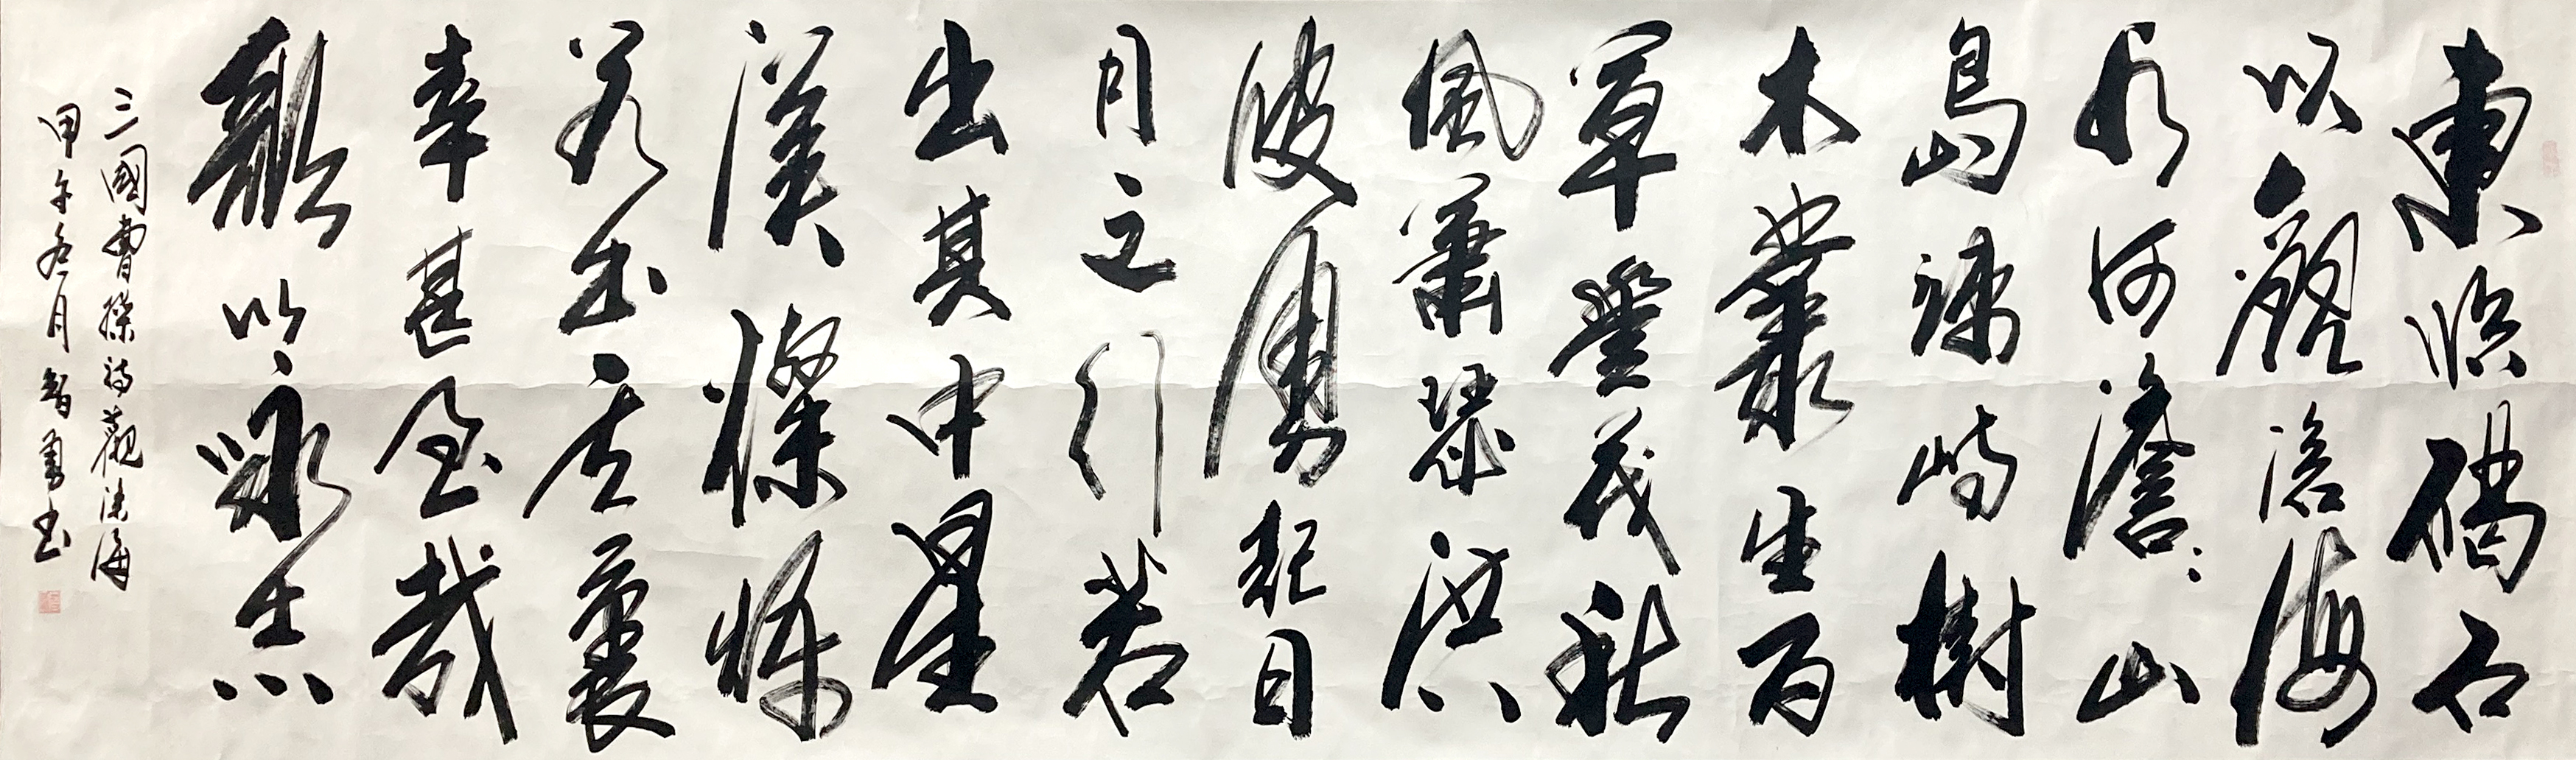 東臨碣石
以觀滄海
水何澹澹山
島竦峙樹
木叢生百
草豐茂秋
風蕭瑟洪
波湧起日
月之行若
出其中星
漢燦爛
若出其裏
幸甚至哉
歌以咏志
三國曹操詩觀滄海
甲午冬月智勇書